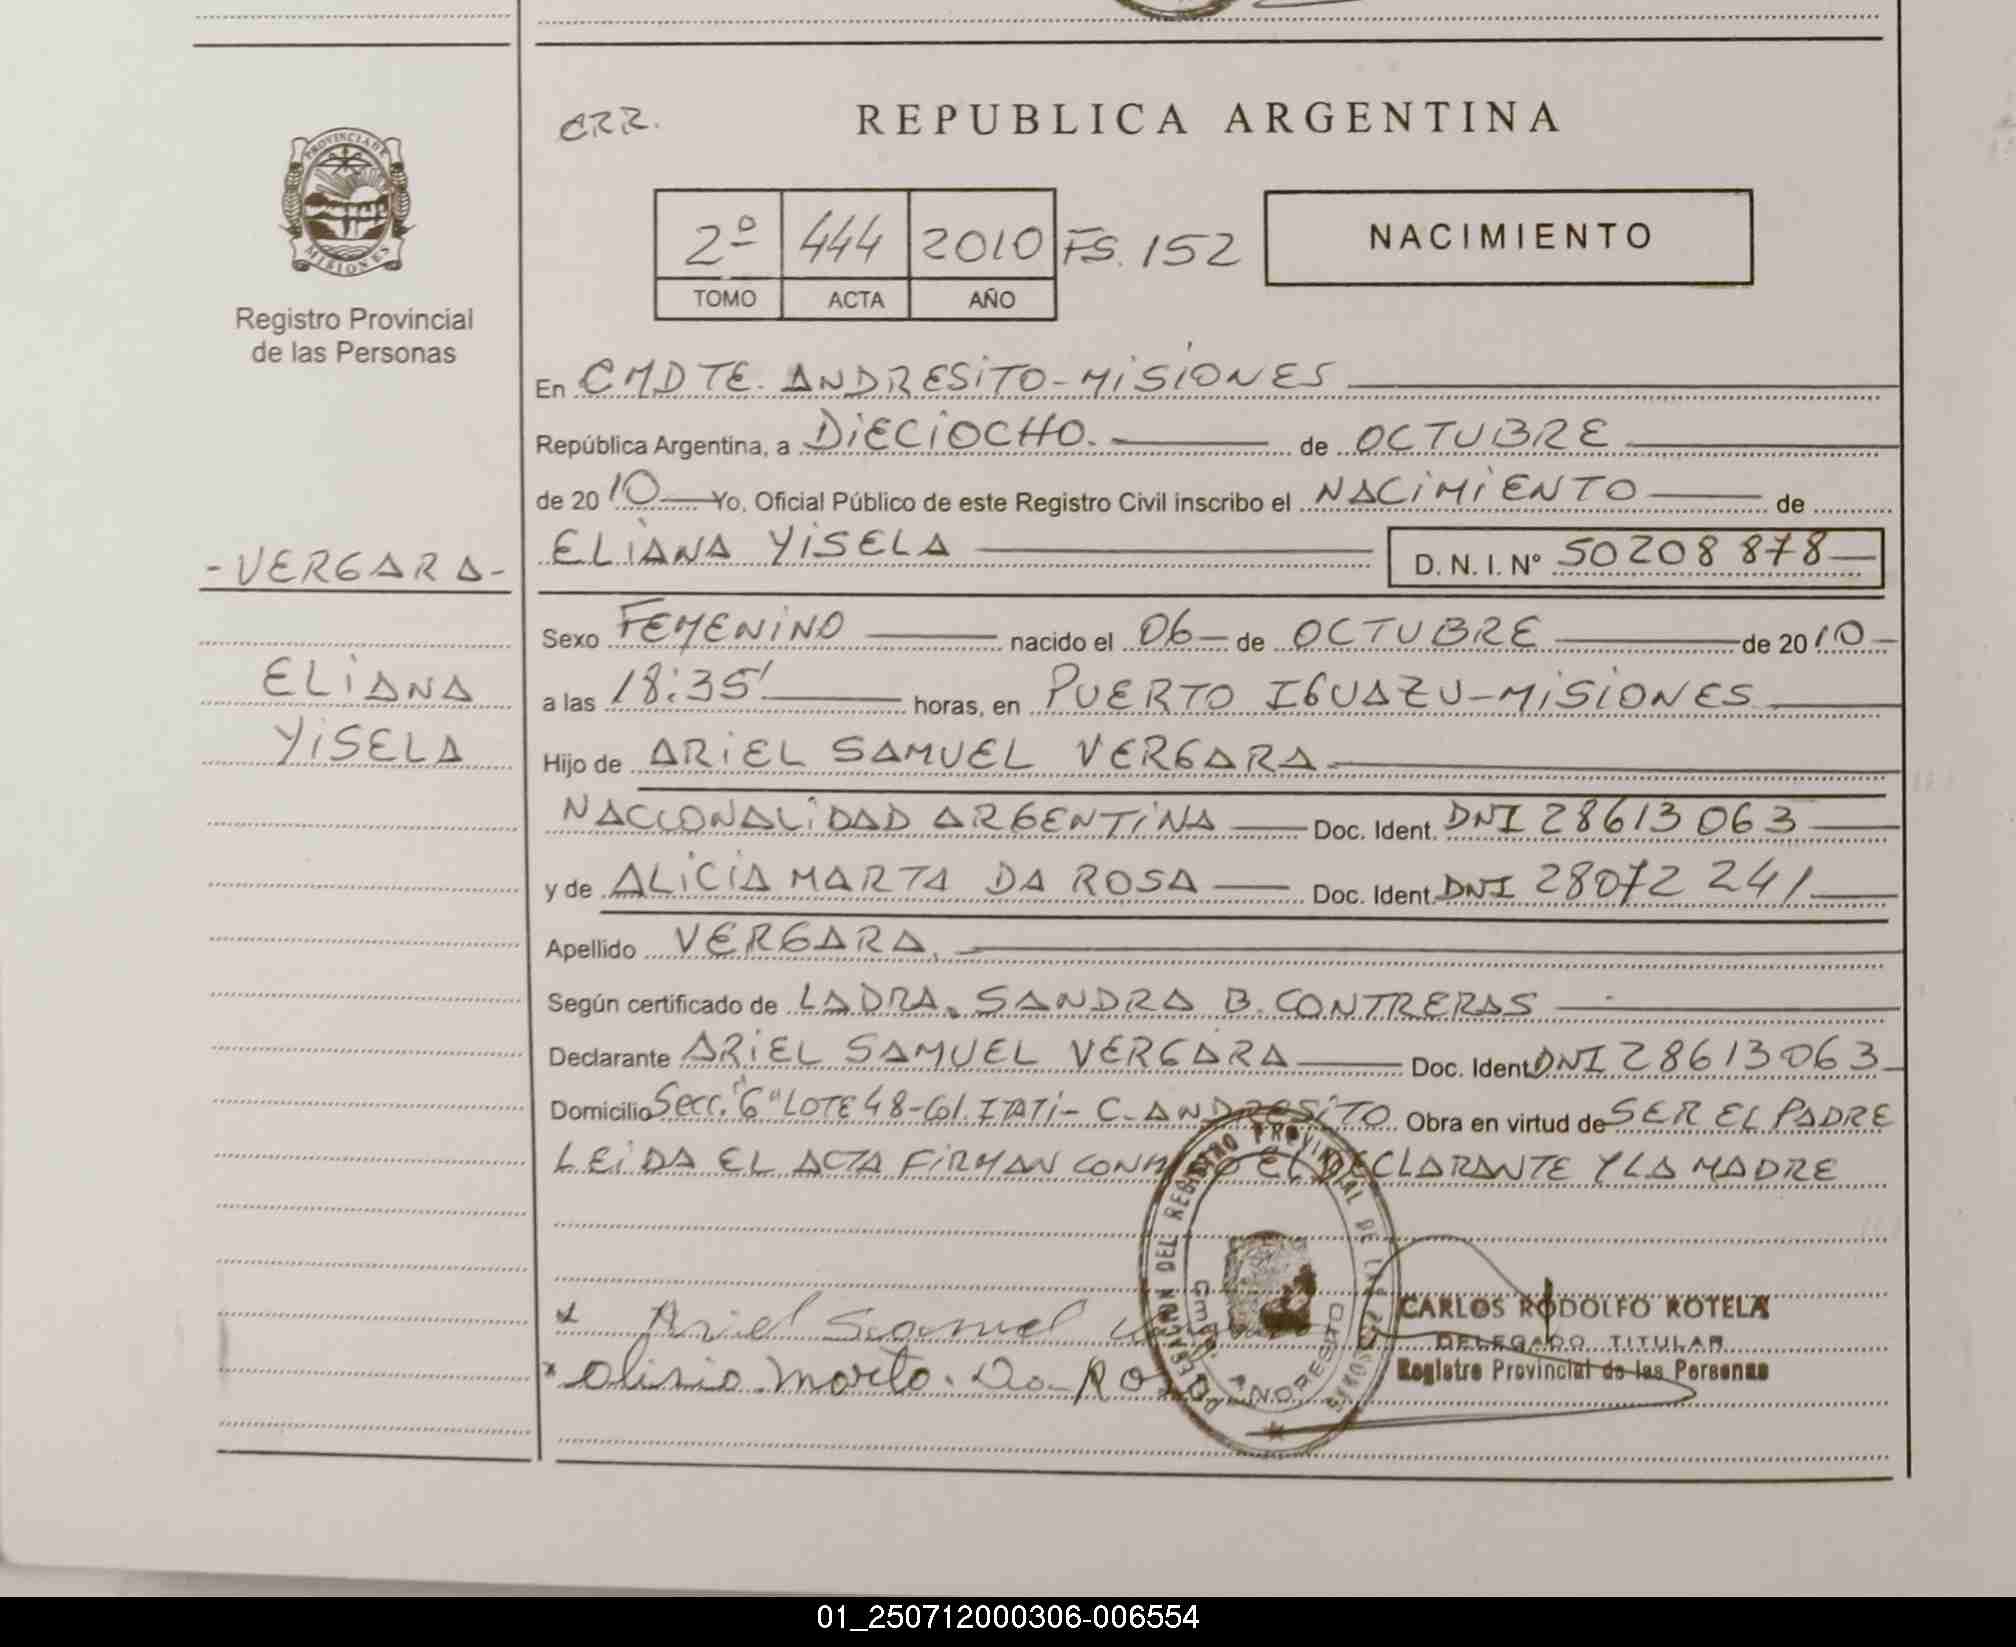 CRR.
REPUBLICA ARGENTINA
PROVINCIA DE
MISIONES
2º 444 2010 FS. 152
TOMO ACTA AÑO
NACIMIENTO
Registro Provincial
de las Personas
En CMDTE. ANDRESITO-MISIONES
República Argentina, a DIECIOCHO. de OCTUBRE
de 2010 Yo, Oficial Público de este Registro Civil inscribo el NACIMIENTO de
-VERGARA- ELIANA YISELA D. N. I. Nº 50208878
Sexo FEMENINO nacido el 06 de OCTUBRE de 2010
ELIANA a las 18:35' horas, en PUERTO IGUAZU-MISIONES
YISELA Hijo de ARIEL SAMUEL VERGARA
NACIONALIDAD ARGENTINA Doc. Ident. DNI 28613063
y de ALICIA MARTA DA ROSA Doc. Ident. DNI 28072241
Apellido VERGARA.
Según certificado de LA DRA. SANDRA B. CONTRERAS
Declarante ARIEL SAMUEL VERGARA Doc. Ident. DNI 28613063
Domicilio Secc. "6" LOTE 48-Col. ITATI- C. ANDRESITO Obra en virtud de SER EL PADRE
LEIDA EL ACTA FIRMAN CONMIGO EL DECLARANTE Y LA MADRE
DELEGACION DEL REGISTRO PROVINCIAL DE LAS PERSONAS
ANDRESITO
Ariel Samuel
CARLOS RODOLFO ROTELA
DELEGADO TITULAR
Registro Provincial de las Personas
Alisia Marta. Da Rosa
01_250712000306-006554